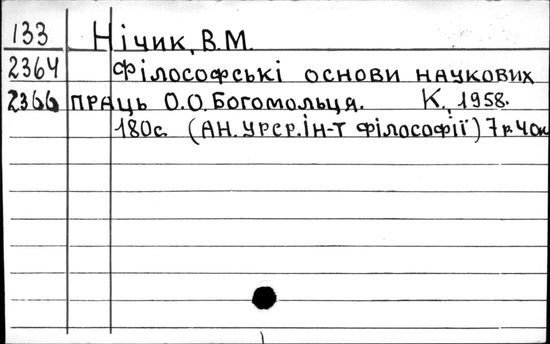 133 Нічик, В.М.
2364 Філософські основи наукових
2366 праць О.О.Богомольця. К., 1958.
180с. (АН.УРСР.Ін-т філософії) 7р.40к